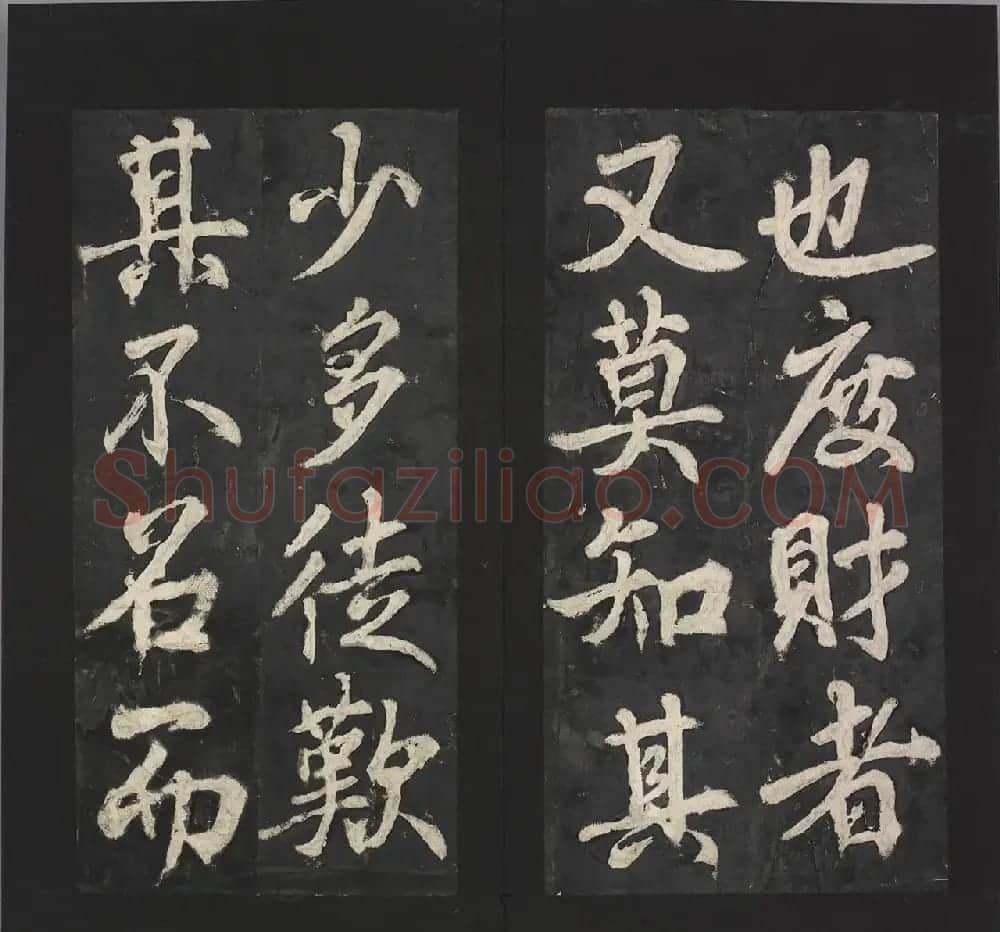 也度財者
又莫知其
少多徒歎
其不名而
Shufaziliao.COM